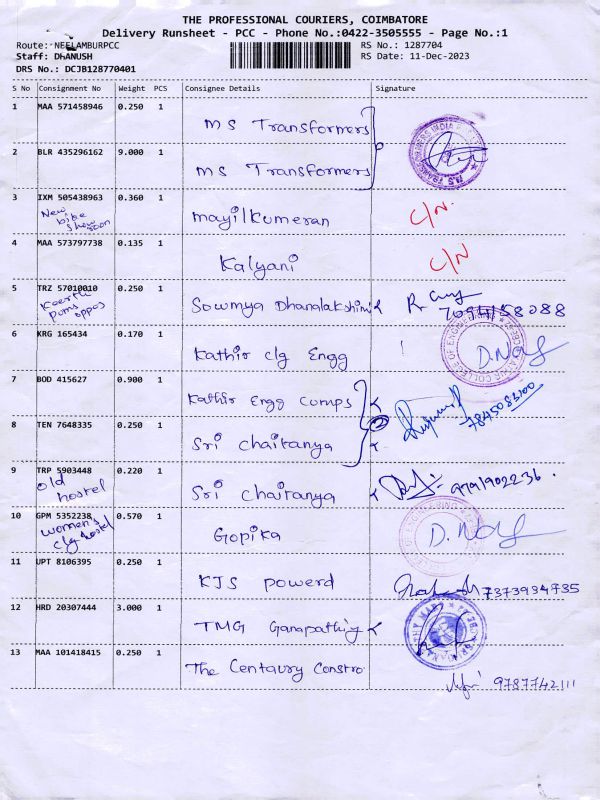 THE PROFESSIONAL COURIERS, COIMBATORE
Delivery Runsheet - PCC - Phone No.:0422-3505555 - Page No.:1
Route: NEELAMBURPCC RS No.: 1287704
Staff: DHANUSH RS Date: 11-Dec-2023
DRS No.: DCJB128770401
S No Consignment No Weight PCS Consignee Details Signature
1 MAA 571458946 0.250 1
MS Transformers
2 BLR 435296162 9.000 1
MS Transformers
3 IXM 505438963 0.360 1
New bike show room
mayilkumeran C/N.
4 MAA 573797738 0.135 1
Kalyani C/N
5 TRZ 57010010 0.250 1
Sowmya Dhanalakshimi 7094158088
6 KRG 165434 0.170 1
Kathir clg Engg
7 BOD 415627 0.900 1
Kathir Engg comps
8 TEN 7648335 0.250 1
2
Sri chaitanya
9 TRP 5903448 0.220 1
old hostel
Sri chaitanya 9791902236.
10 GPM 5352238 0.570 1
women's clg hostel
Gopika
11 UPT 8106395 0.250 1
KJS powerd 7373934735
12 HRD 20307444 3.000 1
TMG Ganapathiy
13 MAA 101418415 0.250 1
The Centaury Constro
9787742111